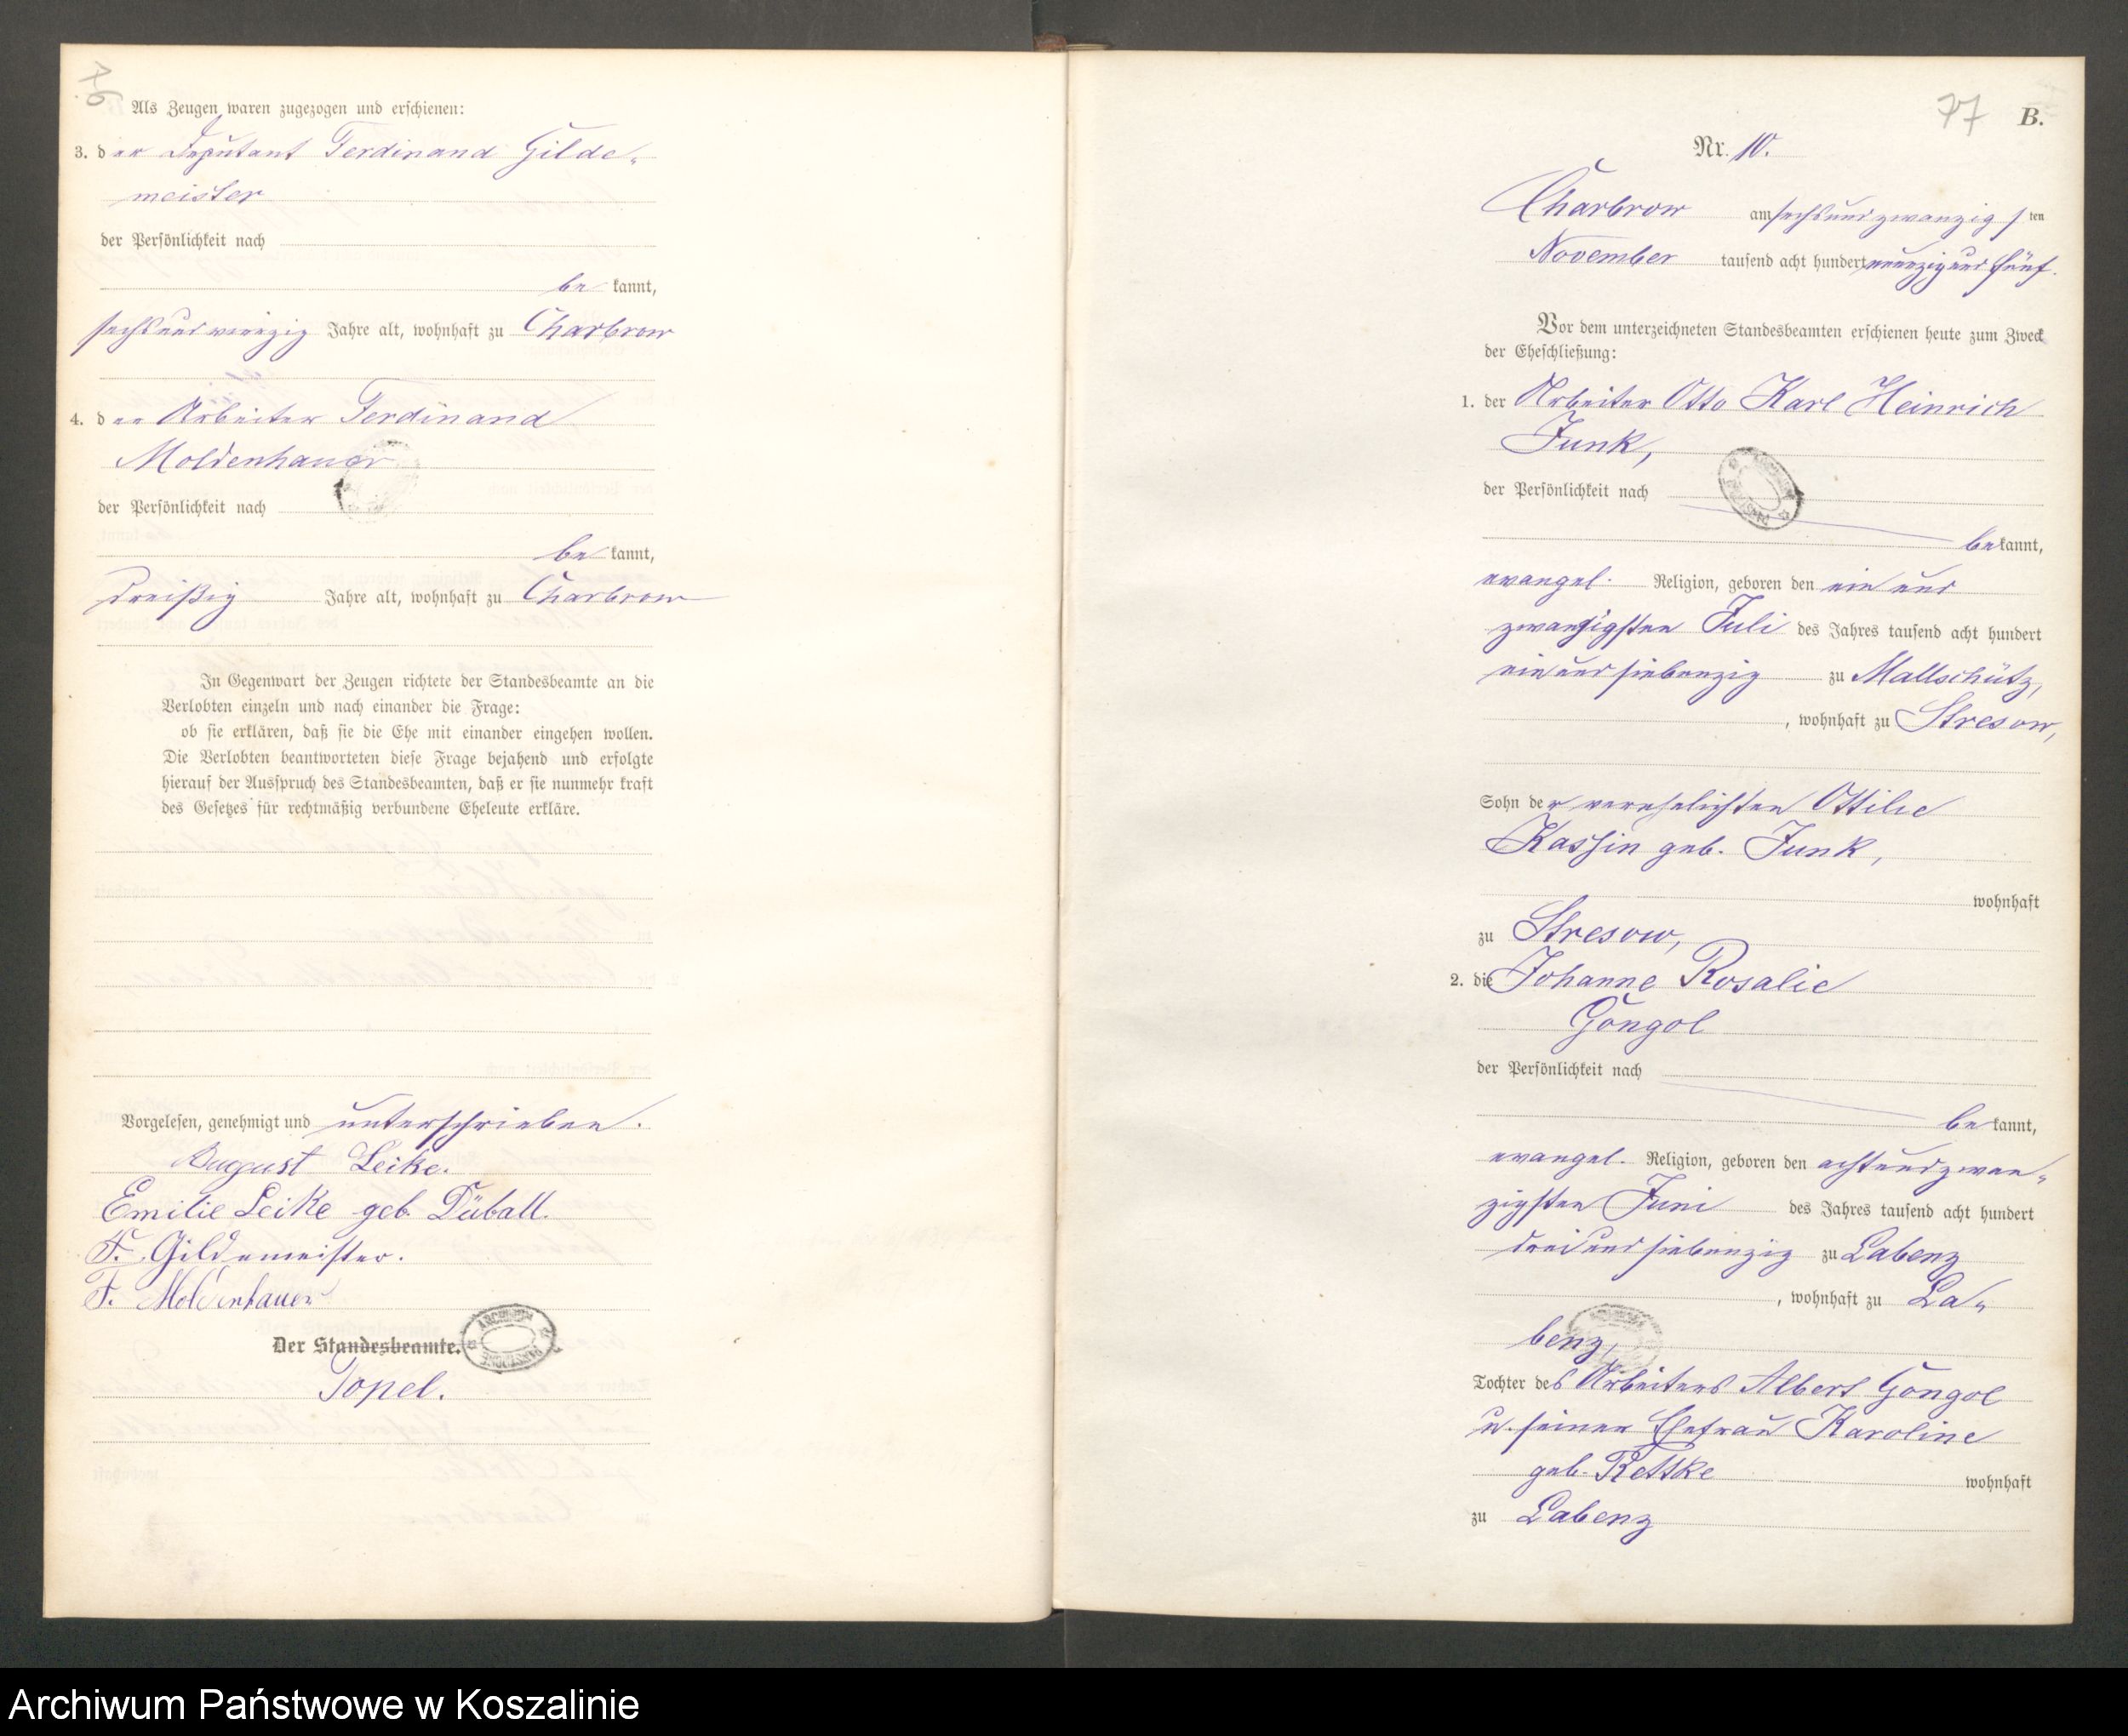 76
Als Zeugen waren zugezogen und erschienen:
3. der Deputant Ferdinand Gilde-
meister
der Persönlichkeit nach
be kannt,
sechsundvierzig Jahre alt, wohnhaft zu Charbrow
4. der Arbeiter Ferdinand
Moldenhauer
der Persönlichkeit nach
be kannt,
dreißig Jahre alt, wohnhaft zu Charbrow
In Gegenwart der Zeugen richtete der Standesbeamte an die
Verlobten einzeln und nach einander die Frage:
ob sie erklären, daß sie die Ehe mit einander eingehen wollen.
Die Verlobten beantworteten diese Frage bejahend und erfolgte
hierauf der Ausspruch des Standesbeamten, daß er sie nunmehr kraft
des Gesetzes für rechtmäßig verbundene Eheleute erkläre.
Vorgelesen, genehmigt und unterschrieben.
August Leike.
Emilie Leike geb. Düball.
F. Gildemeister.
F. Moldenhauer
Der Standesbeamte.
Popel.
77 B.
Nr. 10.
Charbrow am sechsundzwanzigsten
November tausend acht hundert neunzig und fünf.
Vor dem unterzeichneten Standesbeamten erschienen heute zum Zweck
der Eheschließung:
1. der Arbeiter Otto Karl Heinrich
Junk,
der Persönlichkeit nach
bekannt,
evangel. Religion, geboren den ein und
zwanzigsten Juli des Jahres tausend acht hundert
ein und siebenzig zu Mallschütz,
, wohnhaft zu Stresow,
Sohn der verehelichten Ottilie
Kassin geb. Junk,
wohnhaft
zu Stresow,
2. die Johanne Rosalie
Gongol
der Persönlichkeit nach
be kannt,
evangel. Religion, geboren den achtundzwan-
zigsten Juni des Jahres tausend acht hundert
drei und siebenzig zu Labenz
, wohnhaft zu La-
benz,
Tochter des Arbeiters Albert Gongol
u. seiner Ehefrau Karoline
geb. Rettke wohnhaft
zu Labenz
Archiwum Państwowe w Koszalinie